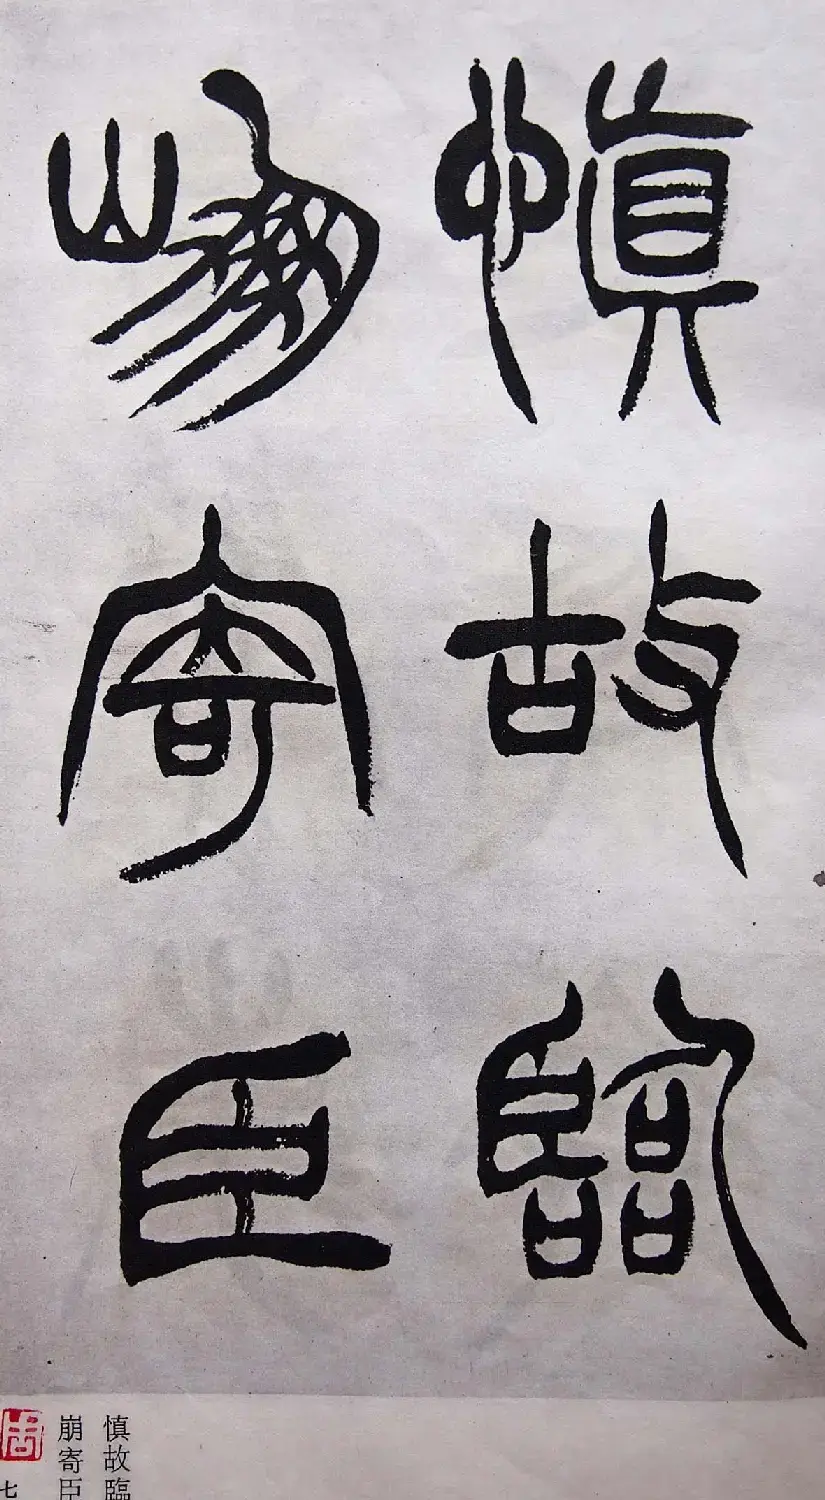 慎故臨
崩寄臣
慎故臨
崩寄臣
七